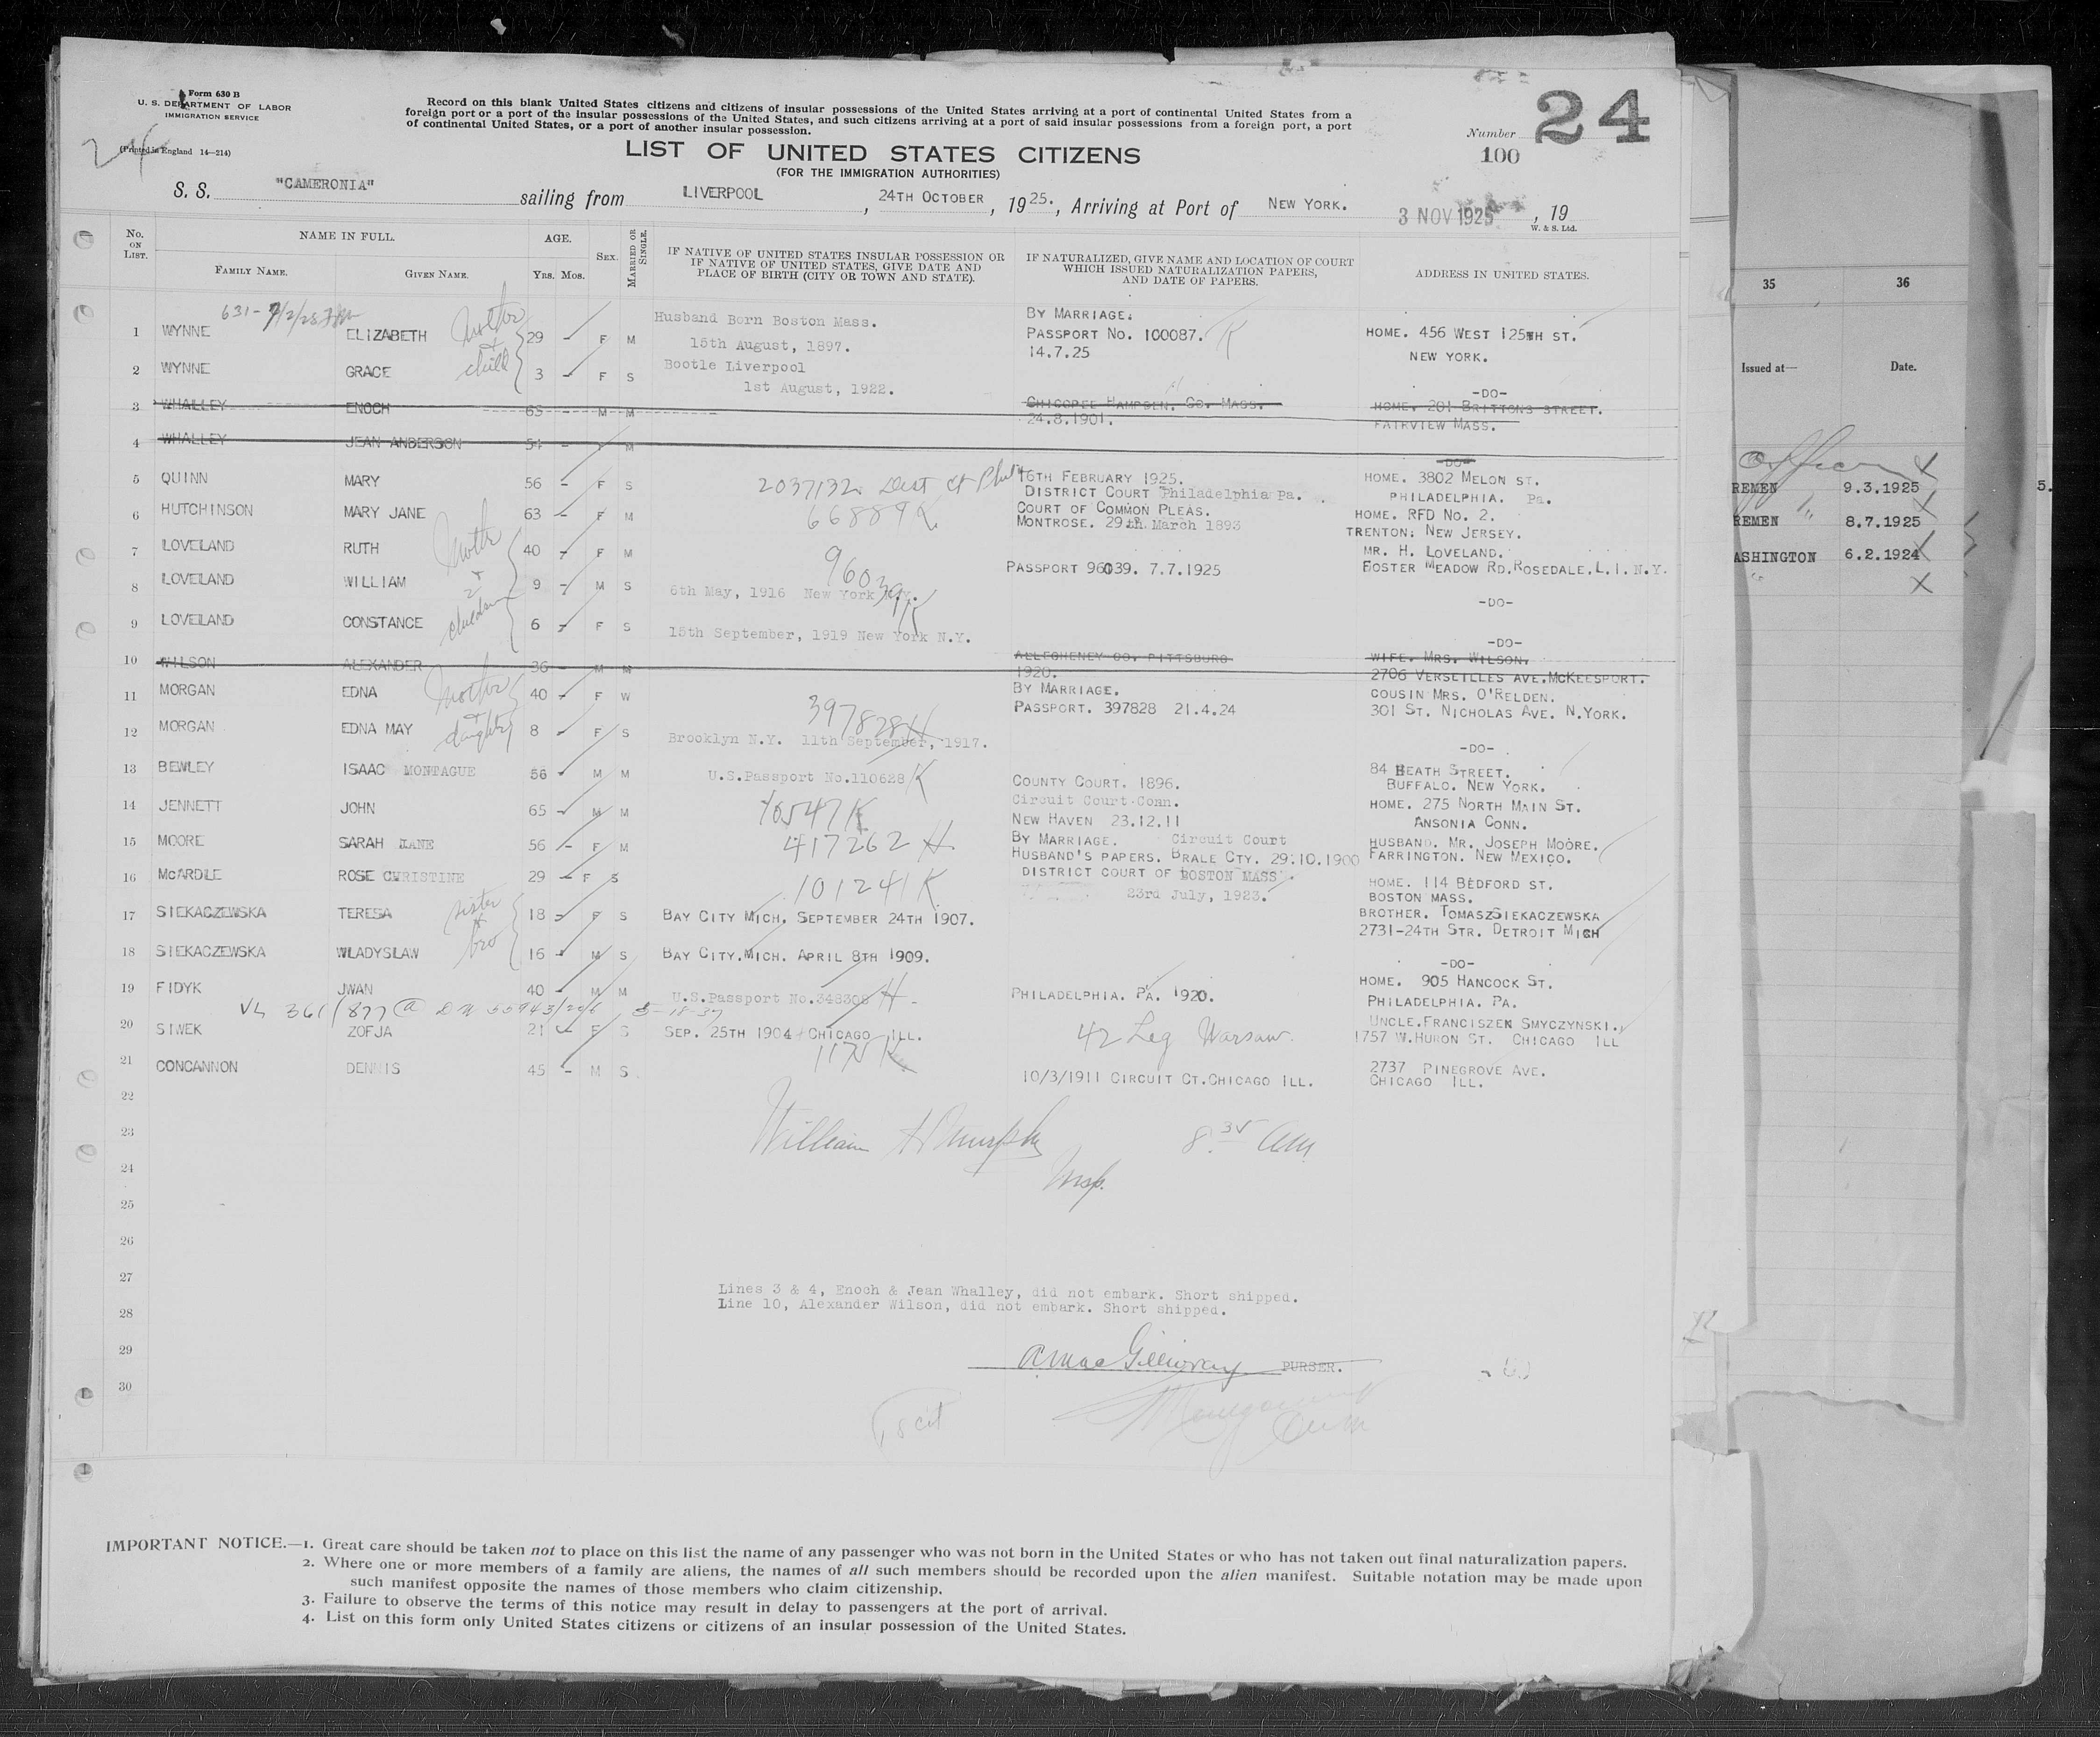 Form 630 B
U. S. DEPARTMENT OF LABOR
IMMIGRATION SERVICE
(Printed in England 14—214)
24
Record on this blank United States citizens and citizens of insular possessions of the United States arriving at a port of continental United States from a
foreign port or a port of the insular possessions of the United States, and such citizens arriving at a port of said insular possessions from a foreign port, a port
of continental United States, or a port of another insular possession.
Number 24
100
LIST OF UNITED STATES CITIZENS
(FOR THE IMMIGRATION AUTHORITIES)
S. S. "CAMERONIA" sailing from LIVERPOOL, 24TH OCTOBER, 1925., Arriving at Port of NEW YORK. 3 NOV 1925, 19
W. & S. Ltd.
No. ON LIST.
NAME IN FULL.
FAMILY NAME. GIVEN NAME.
AGE.
Yrs. Mos.
SEX.
MARRIED OR SINGLE.
IF NATIVE OF UNITED STATES INSULAR POSSESSION OR
IF NATIVE OF UNITED STATES, GIVE DATE AND
PLACE OF BIRTH (CITY OR TOWN AND STATE).
IF NATURALIZED, GIVE NAME AND LOCATION OF COURT
WHICH ISSUED NATURALIZATION PAPERS,
AND DATE OF PAPERS.
ADDRESS IN UNITED STATES.
631-
1 WYNNE ELIZABETH Mother 29 - F M Husband Born Boston Mass. 15th August, 1897. BY MARRIAGE. PASSPORT NO. 100087. K 14.7.25 HOME. 456 WEST 125TH ST. NEW YORK.
+ child
2 WYNNE GRACE 3 - F S Bootle Liverpool 1st August, 1922. -DO-
3 WHALLEY ENOCH 65 - M M CHICOPEE HAMPDEN. CO. MASS. 24.8.1901. HOME. 201 BRITTONS STREET. FAIRVIEW MASS.
4 WHALLEY JEAN ANDERSON 54 - F M -DO-
5 QUINN MARY 56 - F S 2037132 Dist Ct Phil 16TH FEBRUARY 1925. DISTRICT COURT Philadelphia Pa. HOME. 3802 MELON ST. PHILADELPHIA. Pa.
6 HUTCHINSON MARY JANE 63 - F M 66889 K COURT OF COMMON PLEAS. MONTROSE. 29th March 1893 HOME. RFD NO. 2. TRENTON: NEW JERSEY.
7 LOVELAND RUTH Mother 40 - F M 96039 K PASSPORT 96039. 7.7.1925 MR. H. LOVELAND. FOSTER MEADOW RD. ROSEDALE. L.I. N.Y.
+ 2 children
8 LOVELAND WILLIAM 9 - M S 6th May, 1916 New York N.Y. -DO-
9 LOVELAND CONSTANCE 6 - F S 15th September, 1919 New York N.Y. -DO-
10 WILSON ALEXANDER 36 - M M ALLEGHENEY CO. PITTSBURG 1920. WIFE. MRS. WILSON. 2706 VERSEILLES AVE. MCKEESPORT.
11 MORGAN EDNA Mother 40 - F W 397828 H BY MARRIAGE. PASSPORT. 397828 21.4.24 COUSIN MRS. O'RELDEN. 301 ST. NICHOLAS AVE. N.YORK.
+ daughter
12 MORGAN EDNA MAY 8 - F S Brooklyn N.Y. 11th September, 1917. -DO-
13 BEWLEY ISAAC MONTAGUE 56 M M U.S.Passport No.110628 K COUNTY COURT. 1896. 84 HEATH STREET. BUFFALO. NEW YORK.
14 JENNETT JOHN 65 M M 76547 K Circuit Court Conn. NEW HAVEN 23.12.11 HOME. 275 NORTH MAIN ST. ANSONIA CONN.
15 MOORE SARAH JANE 56 - F M 417262 H BY MARRIAGE. Circuit Court HUSBAND'S PAPERS. BRALE CTY. 29.10.1900 HUSBAND. MR. JOSEPH MOORE. FARRINGTON. NEW MEXICO.
16 McARDLE ROSE CHRISTINE 29 - F S 101241 K DISTRICT COURT OF BOSTON MASS. 23rd July, 1923. HOME. 114 BEDFORD ST. BOSTON MASS.
17 SIEKACZEWSKA TERESA sister 18 - F S BAY CITY MICH. SEPTEMBER 24TH 1907. BROTHER. TOMASZ SIEKACZEWSKA 2731-24TH STR. DETROIT MICH
+ bro
18 SIEKACZEWSKA WLADYSLAW 16 - M S BAY CITY. MICH. APRIL 8TH 1909. -DO-
19 FIDYK JWAN 40 - M M U.S.Passport No.348308 H - PHILADELPHIA. PA. 1920. HOME. 905 HANCOCK ST. PHILADELPHIA. PA.
VL 361/877 5-18-37
20 SIWEK ZOFJA 21 F S SEP. 25TH 1904 CHICAGO ILL. 42 Leg Warsaw. UNCLE. FRANCISZEK SMYCZYNSKI. 1757 W.HURON ST. CHICAGO ILL
21 CONCANNON DENNIS 45 - M S 10/3/1911 CIRCUIT CT. CHICAGO ILL. 2737 PINEGROVE AVE. CHICAGO ILL.
22
23 William H Murphy 8 35 am
24 Insp.
25
26
27
Lines 3 & 4, Enoch & Jean Whalley, did not embark. Short shipped.
28 Line 10, Alexander Wilson, did not embark. Short shipped.
29 A MacGillivray PURSER.
30
cit
IMPORTANT NOTICE.—1. Great care should be taken not to place on this list the name of any passenger who was not born in the United States or who has not taken out final naturalization papers.
2. Where one or more members of a family are aliens, the names of all such members should be recorded upon the alien manifest. Suitable notation may be made upon
such manifest opposite the names of those members who claim citizenship.
3. Failure to observe the terms of this notice may result in delay to passengers at the port of arrival.
4. List on this form only United States citizens or citizens of an insular possession of the United States.
35 36
Issued at— Date.
Officer X
REMEN 9.3.1925 5.
REMEN 8.7.1925
ASHINGTON 6.2.1924
X